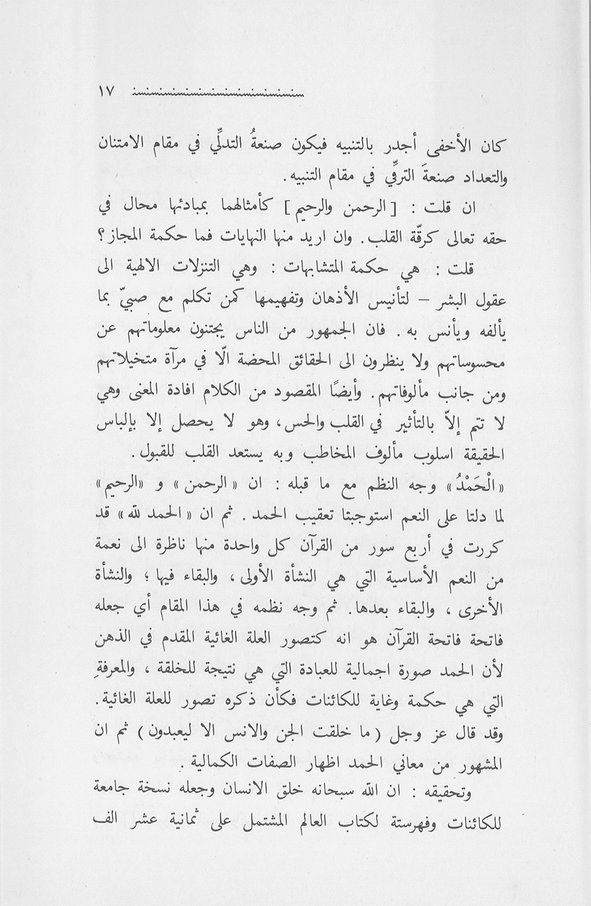 ١٧
كان الأخفى أجدر بالتنبيه فيكون صنعةُ التدلِّي في مقام الامتنان
والتعداد صنعةَ الترقِّي في مقام التنبيه.
ان قلت : [ الرحمن والرحيم ] كأمثالهما بمبادئها محال في
حقه تعالى كرقّة القلب. وان اريد منها النهايات فما حكمة المجاز؟
قلت : هي حكمة المتشابهات : وهي التنزلات الالهية الى
عقول البشر – لتأنيس الأذهان وتفهيمها كمن تكلم مع صبيّ بما
يألفه ويأنس به . فان الجمهور من الناس يجتنون معلوماتهم عن
محسوساتهم ولا ينظرون الى الحقائق المحضة الّا في مرآة متخيلاتهم
ومن جانب مألوفاتهم. وأيضًا المقصود من الكلام افادة المعنى وهي
لا تتم إلاّ بالتأثير في القلب والحس، وهو لا يحصل إلا بإلباس
الحقيقة اسلوب مألوف المخاطب وبه يستعد القلب للقبول.
«الْحَمْدُ» وجه النظم مع ما قبله : ان «الرحمن» و «الرحيم»
لما دلتا على النعم استوجبتا تعقيب الحمد . ثم ان «الحمد لله» قد
كررت في أربع سور من القرآن كل واحدة منها ناظرة الى نعمة
من النعم الأساسية التي هي النشأة الأولى، والبقاء فيها ؛ والنشأة
الأخرى ، والبقاء بعدها. ثم وجه نظمه في هذا المقام أي جعله
فاتحة فاتحة القرآن هو انه كتصور العلة الغائية المقدم في الذهن
لأن الحمد صورة اجمالية للعبادة التي هي نتيجة للخلقة ، والمعرفةِ
التي هي حكمة وغاية للكائنات فكأن ذكره تصور للعلة الغائية.
وقد قال عز وجل ( ما خلقت الجن والانس الا ليعبدون ) ثم ان
المشهور من معاني الحمد اظهار الصفات الكمالية .
وتحقيقه : ان الله سبحانه خلق الانسان وجعله نسخة جامعة
للكائنات وفهرستة لكتاب العالم المشتمل على ثمانية عشر الف